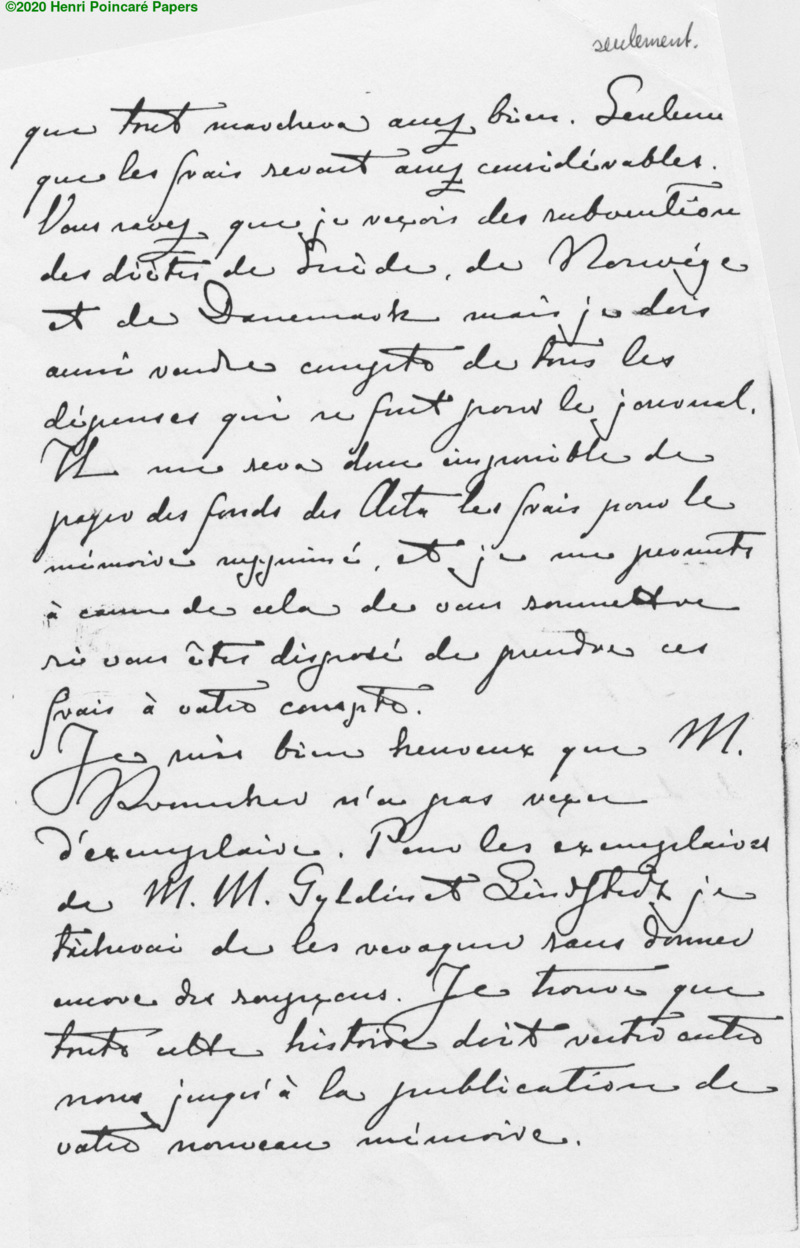 ©2020 Henri Poincaré Papers
seulement.
que tout marchera assez bien. Seuleme
que les frais seront assez considérables.
Vous savez que je reçois des subvention
des diètes de Suède, de Norwége
et de Danemark mais je dois
aussi rendre compte de tous les
dépenses qui se font pour le journal.
Il me sera donc impossible de
payer des fonds des Acta les frais pour le
mémoire supprimé, et je me permets
à cause de cela de vous soumettre
si vous êtes disposé de prendre ces
frais à votre compte.
Je suis bien heureux que M.
Kronecker n'a pas reçu
d'exemplaire. Pour les exemplaires
de M. M. Gyldén et Lindstedt je
tâcherai de les revoquer sans donner
encore des soupçons. Je trouve que
toute cette histoire doit rester entre
nous jusqu'à la publication de
votre nouveau mémoire.